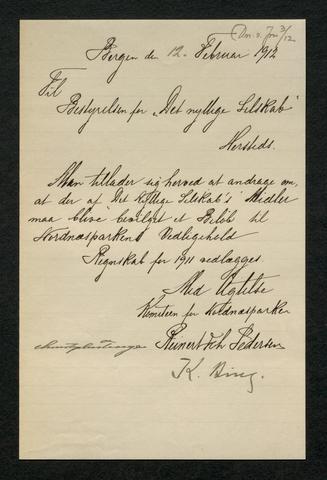 3/12
Bergen den 12. Februar 1912
Til
Bestyrelsen for "Det nyttige Selskab"
Hersteds.
Man tillader sig herved at andrage om,
at der af "Det nyttige Selskab's" Midler
maa blive bevilget et Beløb til
Nordnæsparkens Vedligehold
Regnskab for 1911 vedlægges
Med Agtelse
Komiteen for Nordnæsparken
Reinert Fch Pedersen
K. Bing.